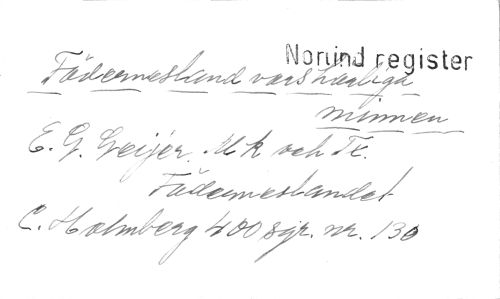 Norlind register
Fädernesland vars härliga
minnen
E. G. Geijer. Mk och Tx.
Fäderneslandet
C. Holmberg 400 sgr. nr. 130